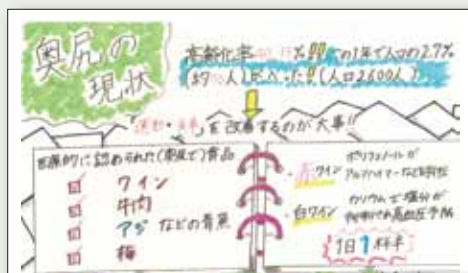 奥尻の
現状
高齢化率 %!! この1年で人口の2.7%
(約70人)減った!!(人口2600人)
「運動・食事」を改善するのが大事!!
世界的に認められた(奥尻で)食品
ワイン
牛肉
アジ などの青魚
梅
・赤ワイン ポリフェノールが
アルツハイマーなどを
・白ワイン カリウムで塩分が
高血圧予防
1日1杯半